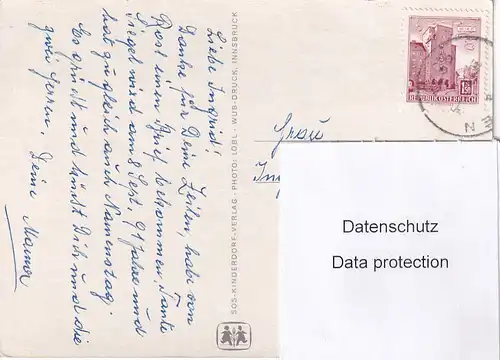 Liebe Ingrid!
Danke für Deine Zeilen, habe von
Post einen Brief bekommen. Tante
wird am 8 Sept. 91 Jahre und
hat zu gleich auch Namenstag.
Es grüsst und küsst Dich und die
zwei Herren, Deine Mamma
SOS-KINDERDORF-VERLAG · PHOTO: LÖBL · WUB-DRUCK, INNSBRUCK
REPUBLIK ÖSTERREICH
1.50
Frau
In
Datenschutz
Data protection